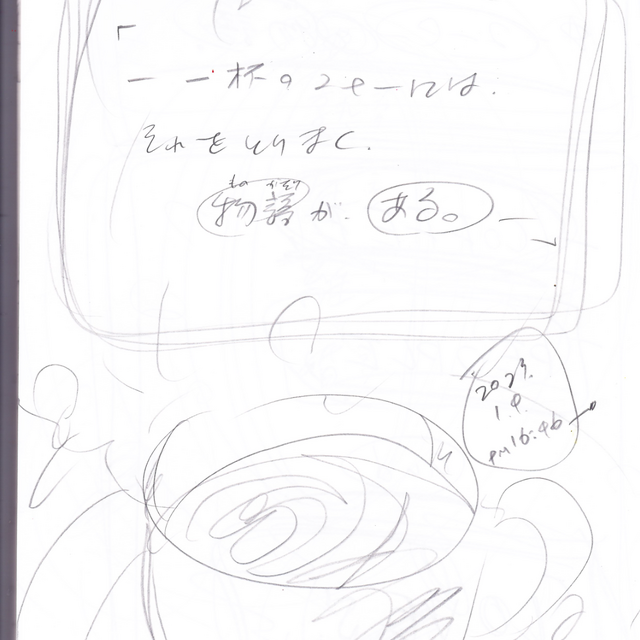 「
― 一杯のコーヒーには、
それをとりまく、
ものがたり
物語が、ある。―
」
2023.
1.9.
PM16:46